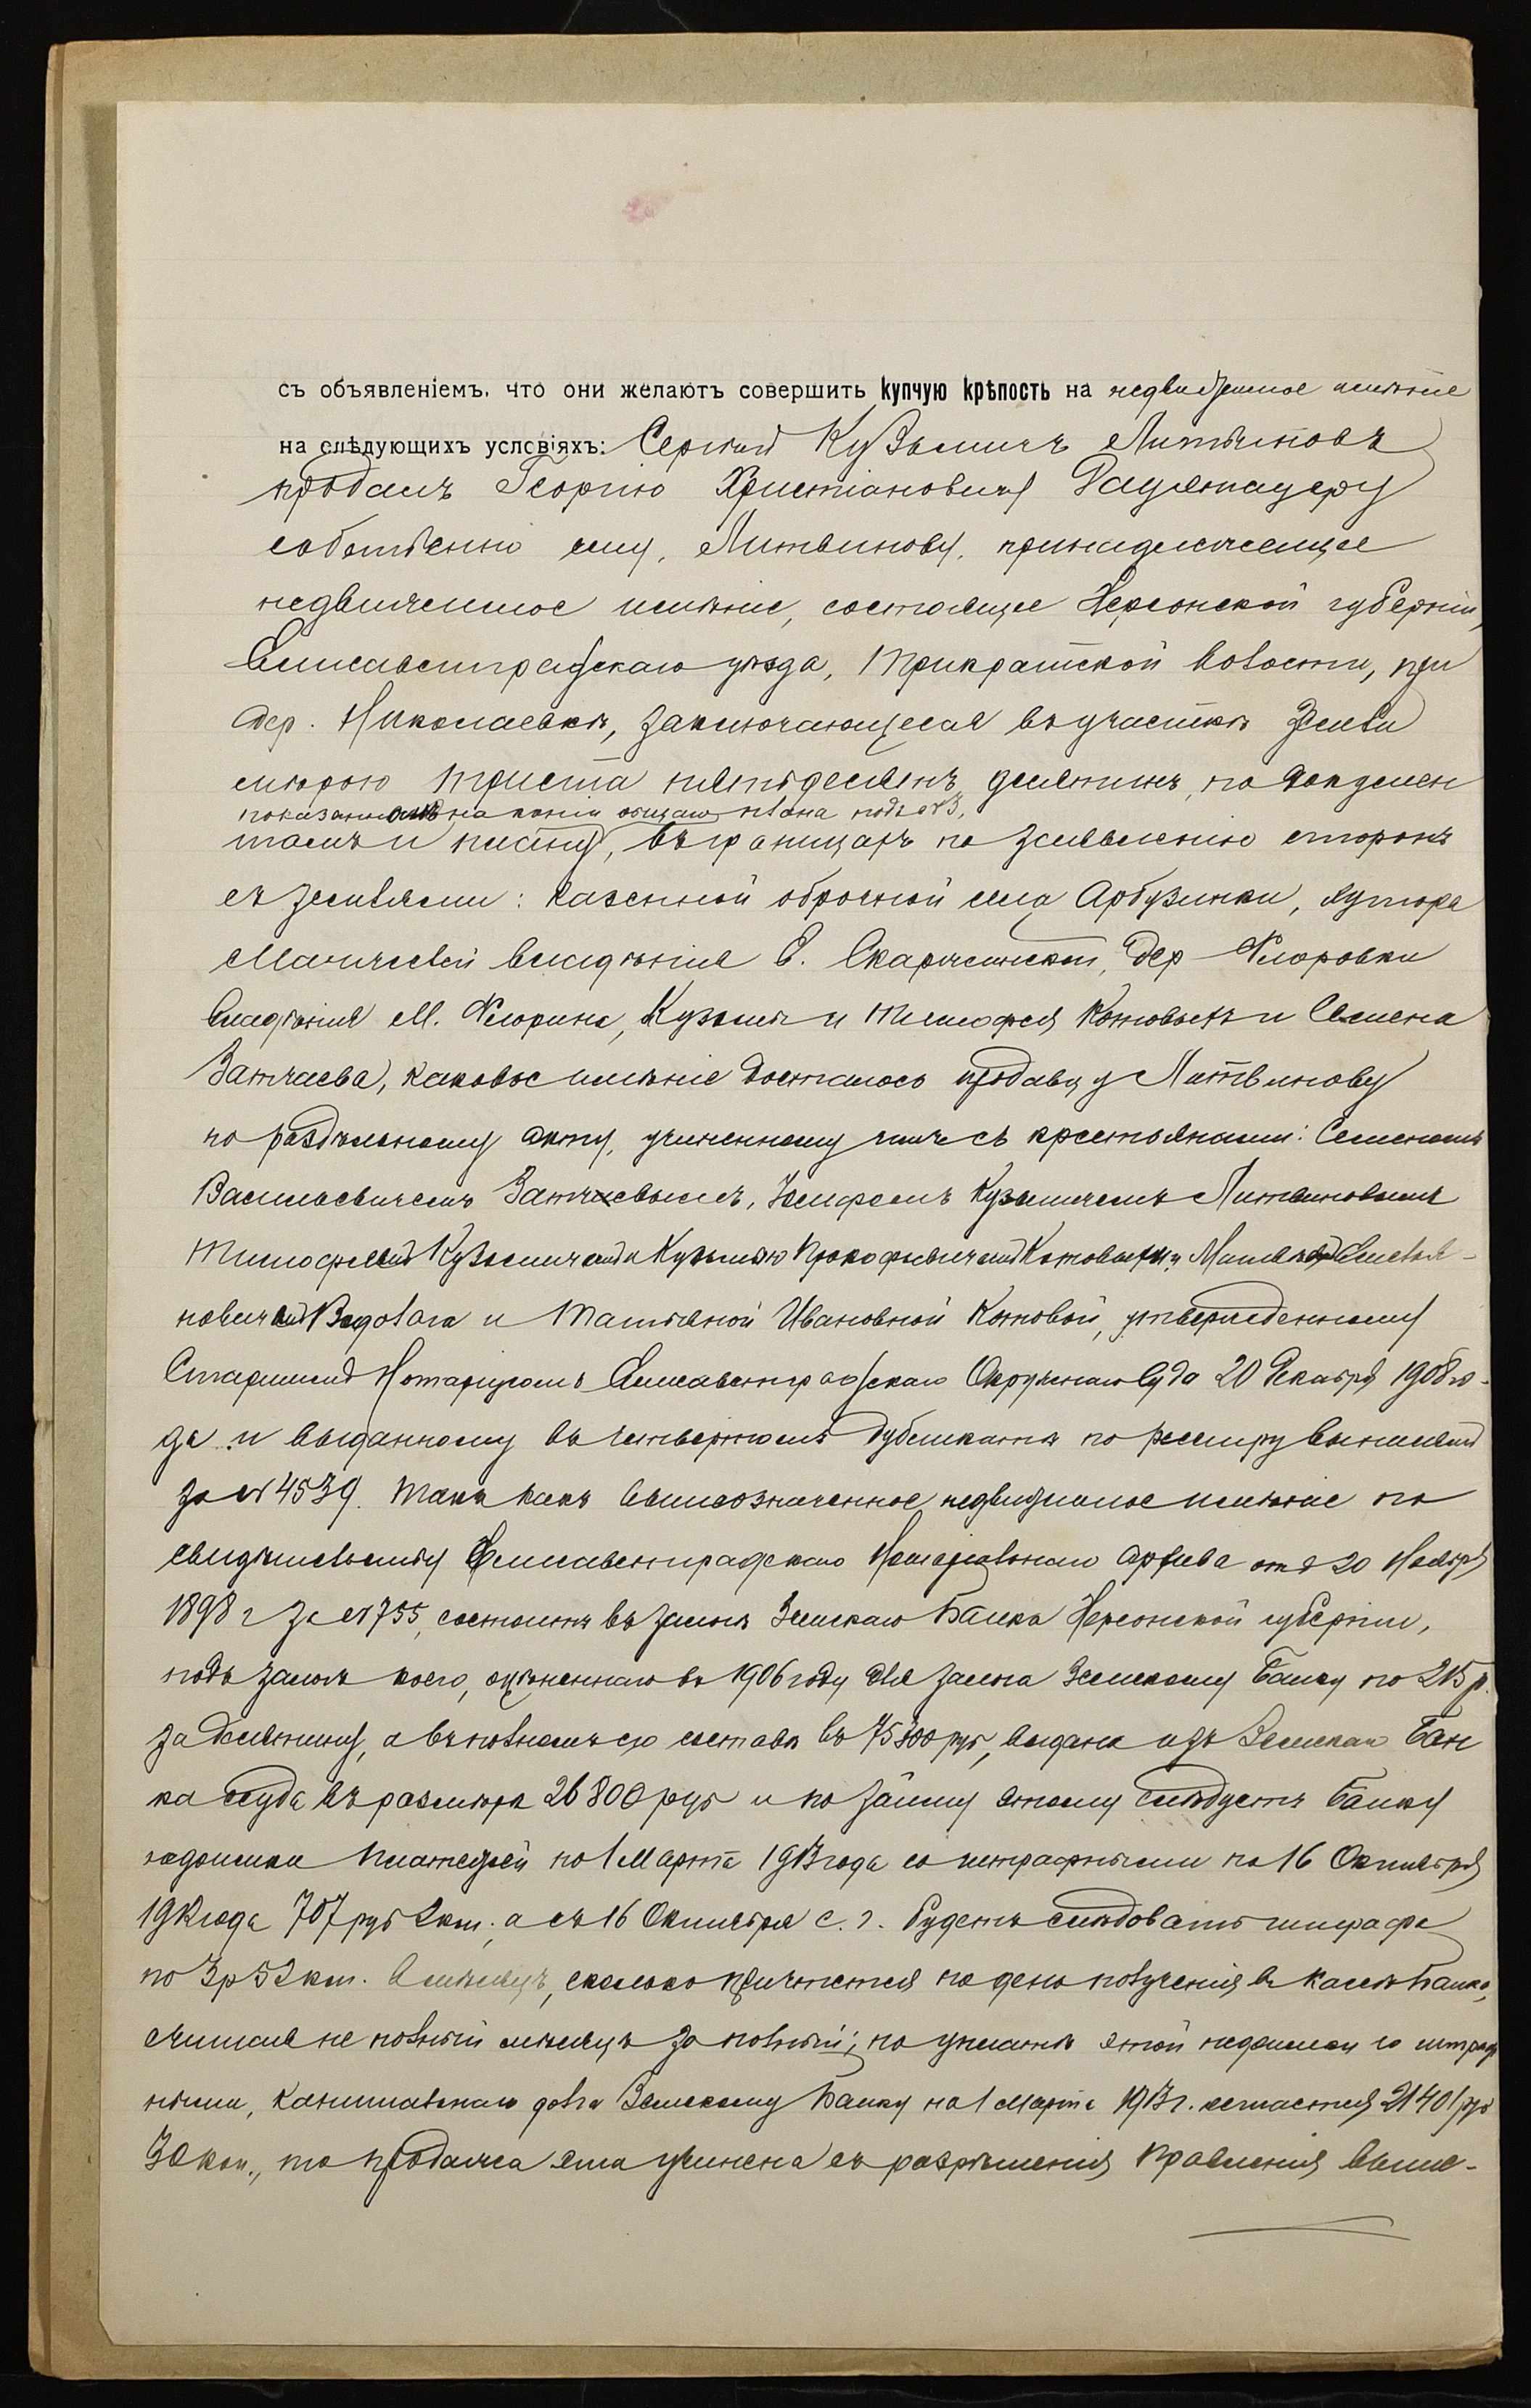 съ объявленіемъ, что они желаютъ совершить купчую крѣпость на недвижимое имѣніе
на слѣдующихъ условіяхъ: Сергѣй Кузьмичъ Литвиновъ
продалъ Георгію Христіановичу
собственно ему, Литвинову, принадлежащее
недвижимое имѣніе, состоящее Херсонской губерніи,
Елисаветградскаго уѣзда, Трикратской волости, при
дер. Николаевкѣ, заключающееся въ участкѣ земли
мѣрою триста пятьдесятъ десятинъ, по докумен
показаннымъ на копіи общаго плана подъ №3,
тамъ и плану, въ границахъ по заявленію сторонъ
съ землями: казенной оброчной села Арбузинки, хутора
владѣнія Е. Скаржинской, дер. Флоровки
владѣнія М. Флорина, Кузьмы и Тимофея Котовыхъ и Семена
Затчаева, каковое имѣніе досталось продавцу Литвинову
по раздѣльному акту, учиненному имъ съ крестьянами: Семеномъ
Васильевичемъ Затчаевымъ, Кузьмичемъ Литвиновымъ
Тимофеемъ Кузьмичемъ и Кузьмою Прокофьевичемъ Котовыми, Емелья-
новичемъ и Татьяной Ивановной Котовой, утвержденному
Старшимъ Нотаріусомъ Елисаветградскаго Окружнаго Суда 20 Декабря 1908 го-
да и выданному въ четвертомъ дубликатѣ по реестру
за № 4539. Такъ какъ вышеозначенное недвижимое имѣніе по
свидѣтельству Елисаветградскаго Нотаріальнаго Архива отъ 20 Ноября
1898 г за №755, состоитъ въ залогѣ Земскаго Банка Херсонской губерніи,
подъ залогъ коего, оцѣненнаго въ 1906 году для залога Земскому Банку по 215 р.
за десятину, а въ полномъ его составѣ въ 75300 руб, выдана изъ Земскаго Бан
ка ссуда въ размѣрѣ 26800 руб и по займу этому слѣдуетъ Банку
недоимки платежей по 1 Марта 1913 года со штрафными по 16 Октября
года 707 руб 2 коп.; а съ 16 Октября с. г. будетъ слѣдовать штрафа
по 3 р 52 коп. въ мѣсяцъ, сколько причтется по день полученія въ кассѣ Банка,
считая не полный мѣсяцъ за полный; по уплатѣ этой недоимки со штраф
ными, капитальнаго долга Земскому Банку на 1 Марта 1913 г. останется 21401 руб
коп., то продажа эта учинена съ разрѣшенія Правленія выше-